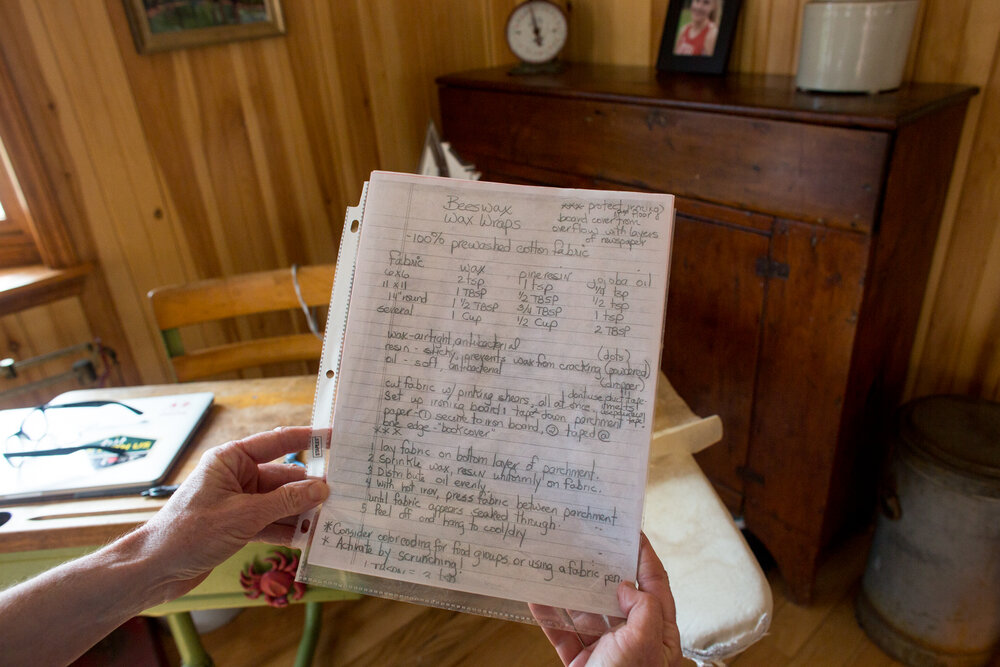 Beeswax
Wax Wraps
*** protect ironing
and floor
board cover from
overflow with layers
of newspaper
-100% prewashed cotton fabric
fabric wax pine resin jojoba oil
6x6 2 tsp 1 tsp 1/4 tsp
11x11 1 TBSP 1/2 TBSP 1/2 tsp
14" round 1 1/2 TBSP 3/4 TBSP 1 tsp
several 1 Cup 1/2 Cup 2 TBSP
wax-airtight, antibacterial (dots)
resin - sticky, prevents wax from cracking (powdered)
oil - soft, antibacterial (dropper)
cut fabric w/ pinking shears, all at once.
I don't use duct tape-
it melts!
Set up ironing board: tape down parchment
paper-① secure to iron board, ② taped @
one edge-"book cover"
***
1 lay fabric on bottom layer of parchment.
2 sprinkle wax, resin uniformly on fabric.
3 Distribute oil evenly
4 with hot iron, press fabric between parchment
until fabric appears soaked through.
5 Peel off and hang to cool/dry
*Consider color coding for food groups, or using a fabric pen.
* Activate by scrunching!